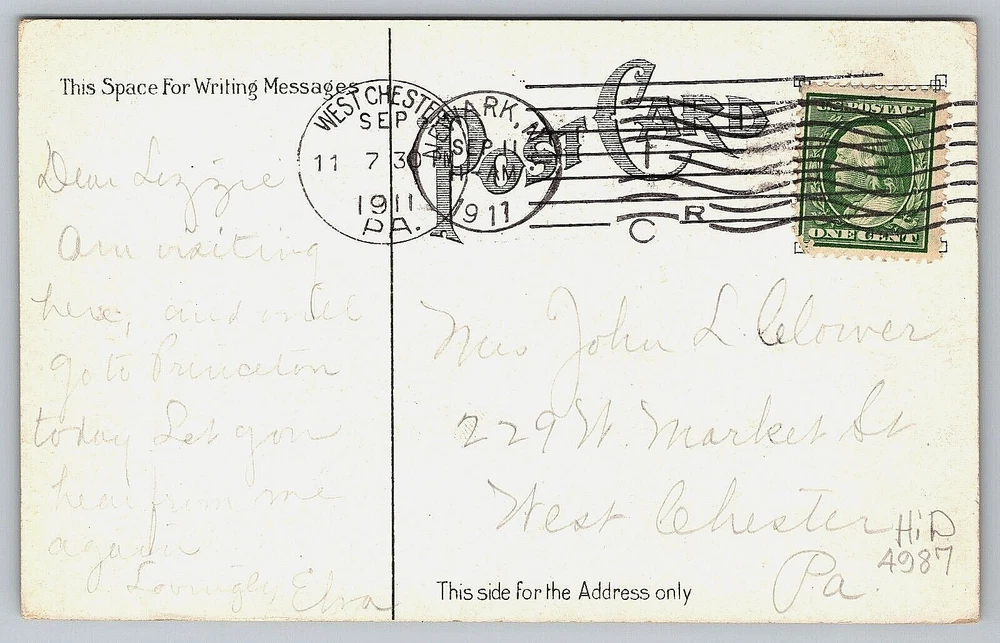 This Space For Writing Messages
POST CARD
WEST CHESTER
SEP
11 7 30 PM
1911
PA.
NEWARK, N.J.
SEP 11
11 AM
1911
C R
U.S. POSTAGE
ONE CENT
Dear Lizzie
Am visiting
here, and will
go to Princeton
today Let you
hear from me
again
Lovingly, Elva
Mrs John L Clower
229 W. Market St.
West Chester
Pa.
HiD
4987
This side for the Address only